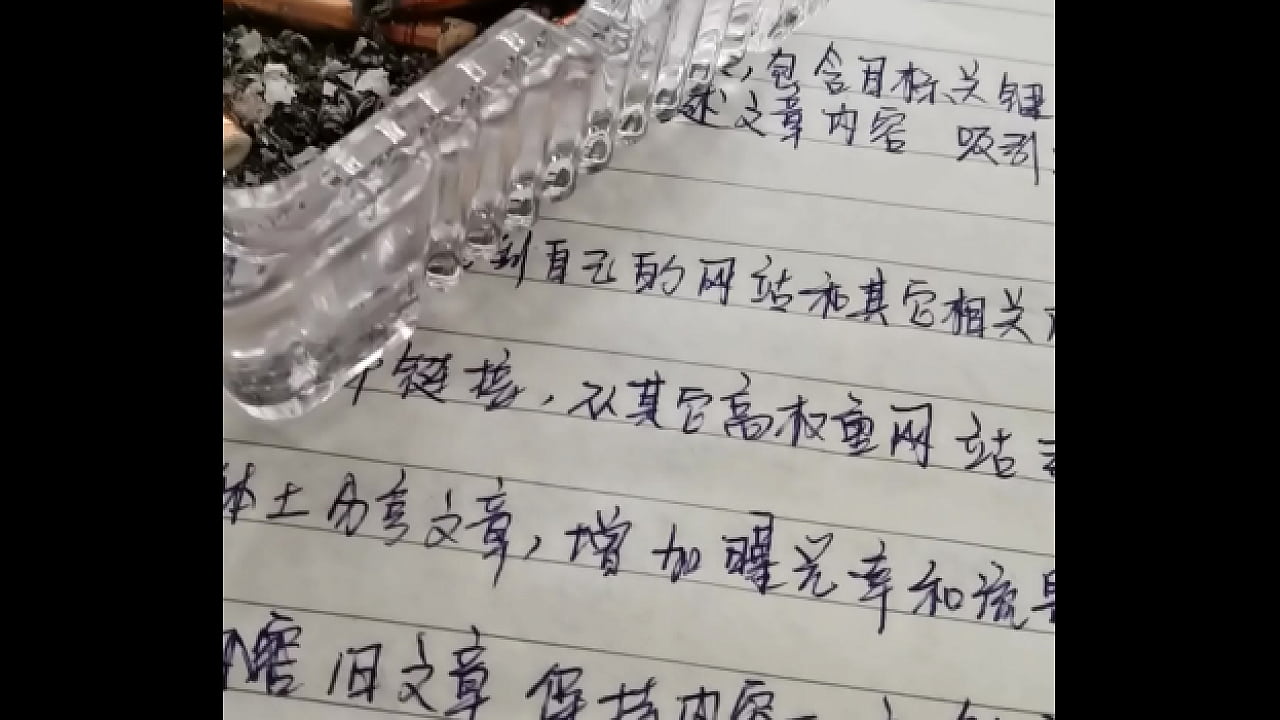 ,包含目标关键
述文章内容 吸引
到自己的网站和其它相关
链接,从其它高权重网站
体上分享文章,增加曝光率和流量
旧文章 保持内容